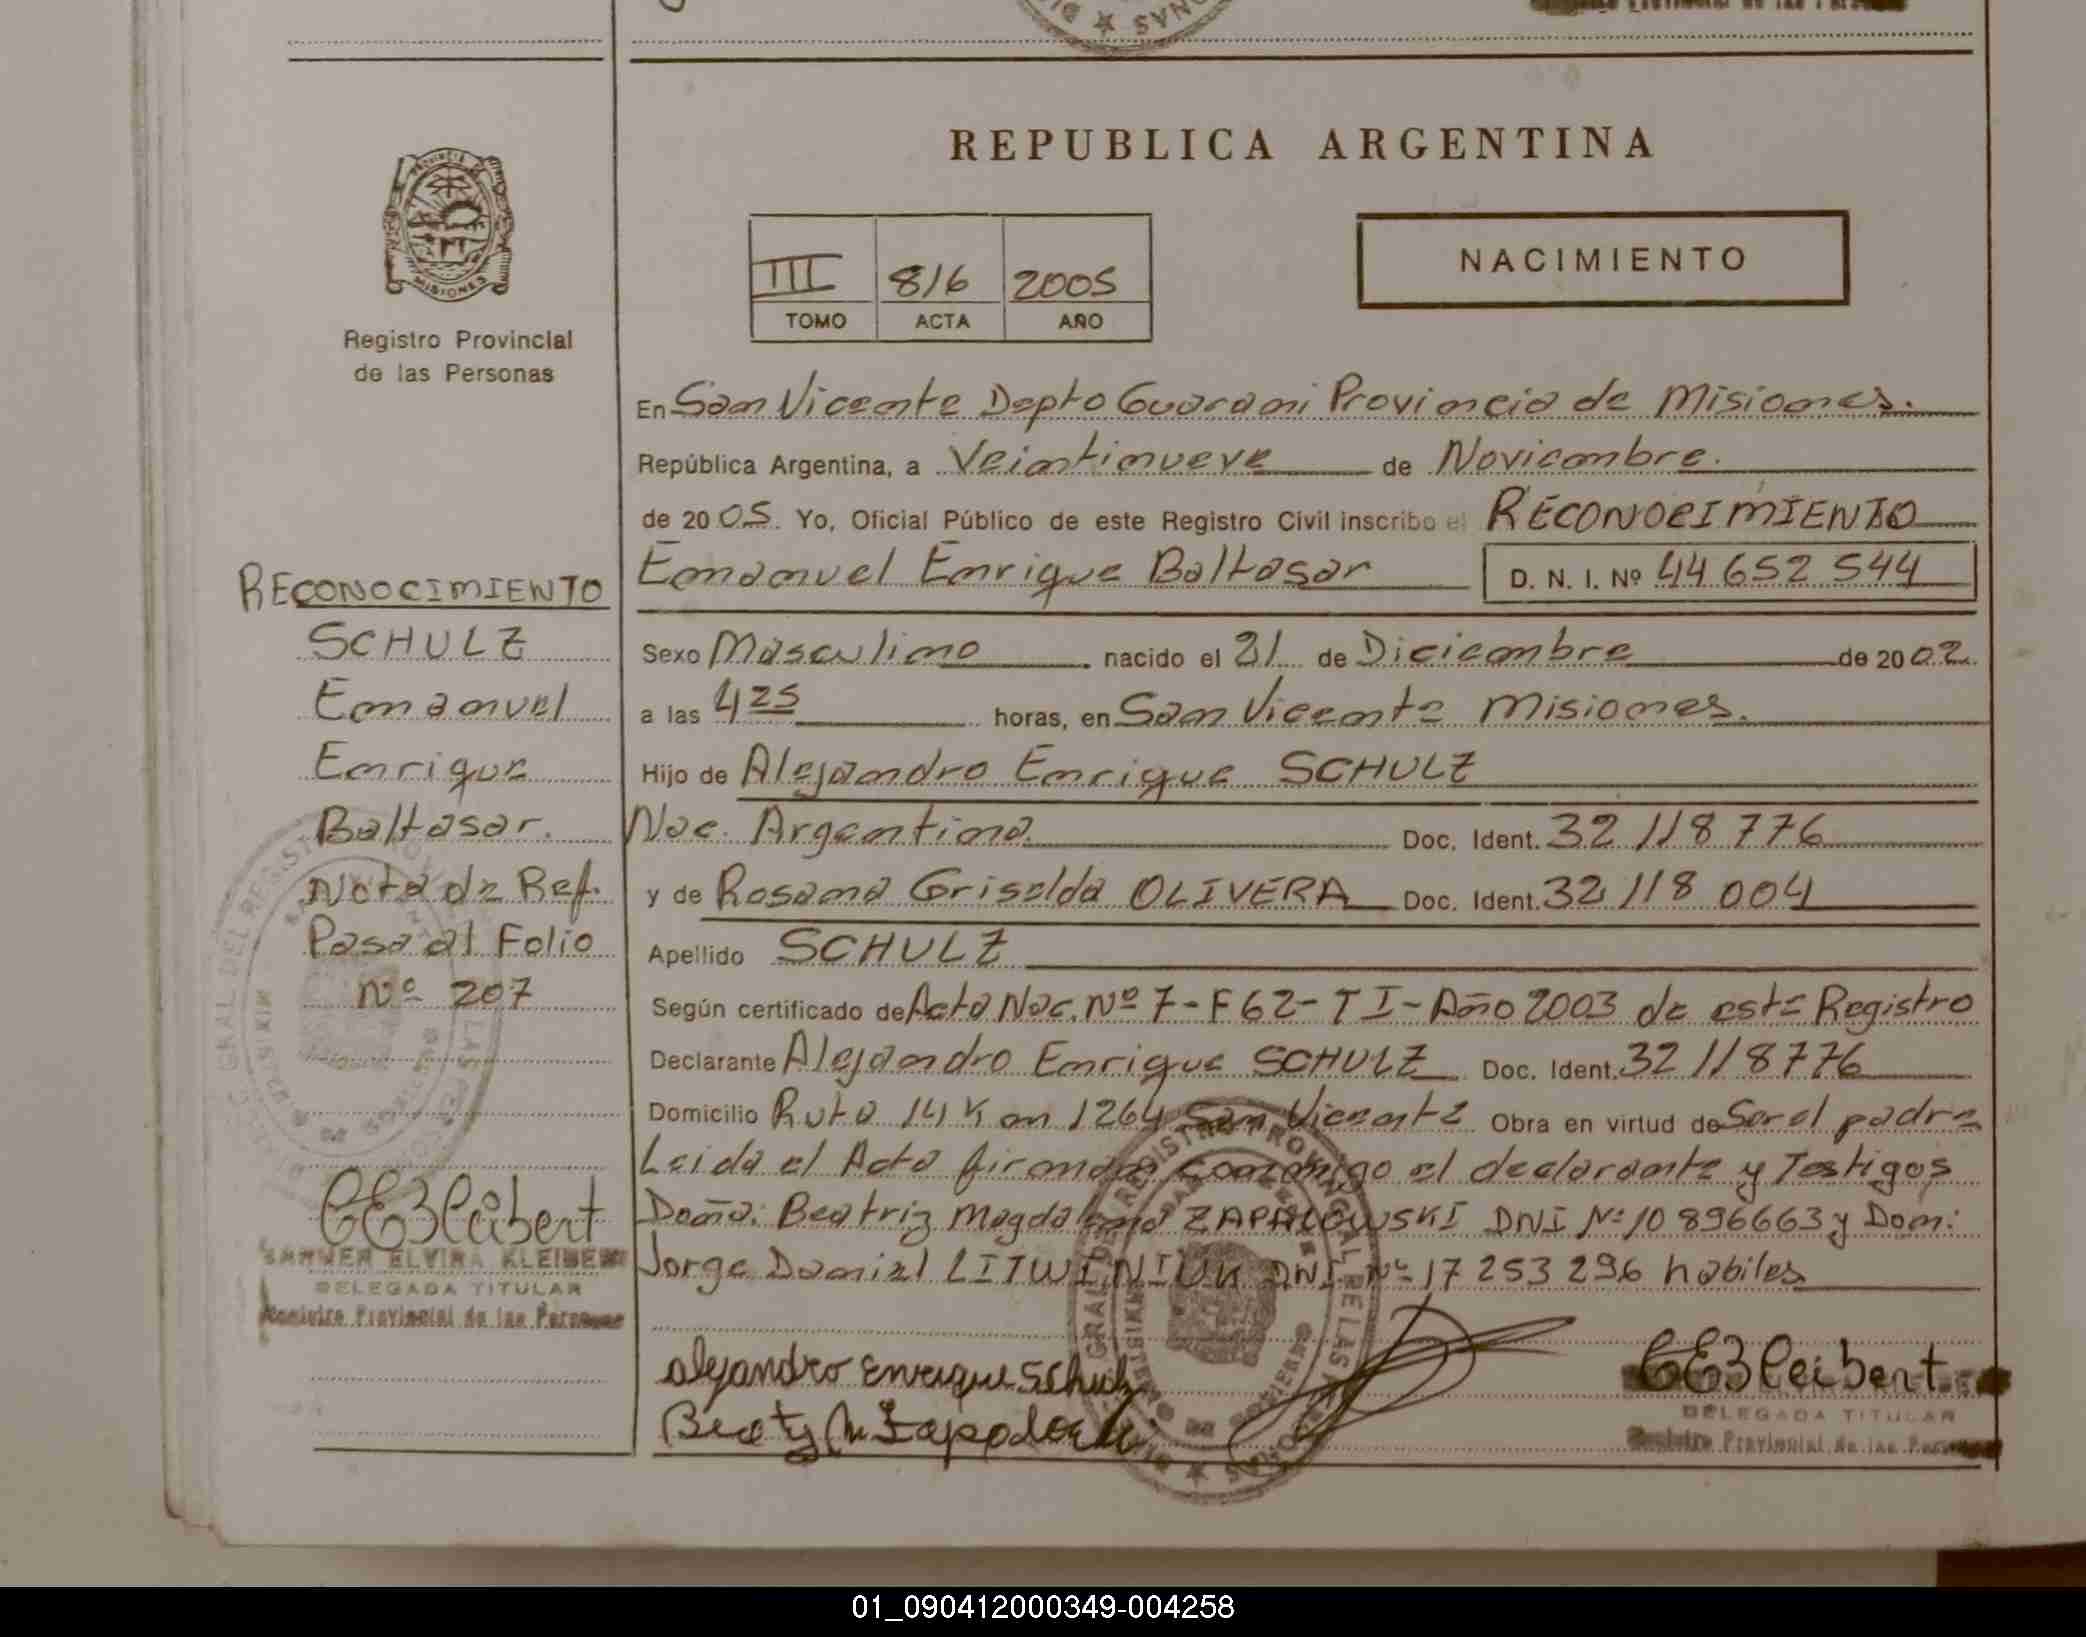 REPUBLICA ARGENTINA
PROVINCIA DE
MISIONES
Registro Provincial
de las Personas
III 816 2005
TOMO ACTA AÑO
NACIMIENTO
En San Vicente Depto Guarani Provincia de Misiones.
República Argentina, a Veintinueve de Noviembre.
de 2005. Yo, Oficial Público de este Registro Civil inscribo el RECONOCIMIENTO
Emanuel Enrique Baltasar D. N. I. Nº 44 652 544
Sexo Masculino nacido el 21 de Diciembre de 2002
a las 4 25 horas, en San Vicente Misiones.
Hijo de Alejandro Enrique SCHULZ
Nac. Argentina. Doc. Ident. 32 118 776
y de Rosana Griselda OLIVERA Doc. Ident. 32 118 004
Apellido SCHULZ
Según certificado de Acta Nac. Nº 7-F62-TI-Año 2003 de este Registro
Declarante Alejandro Enrique SCHULZ Doc. Ident. 32 118776
Domicilio Ruta 14 Km 1264 San Vicente Obra en virtud de Ser el padre
Leida el Acta firman conmigo el declarante y Testigos
Doña: Beatriz Magdalena ZAPALOWSKI DNI Nº 10 896663 y Don:
Jorge Daniel LITWINIUK DNI Nº 17 253 296 habiles
Alejandro Enrique Schulz
DELEGADA TITULAR
Registro Provincial de las Personas
RECONOCIMIENTO
SCHULZ
Emanuel
Enrique
Baltasar.
Nota de Ref.
Pasa al Folio
Nº 207
CARMEN ELVIRA KLEIBERT
DELEGADA TITULAR
Registro Provincial de las Personas
01_090412000349-004258